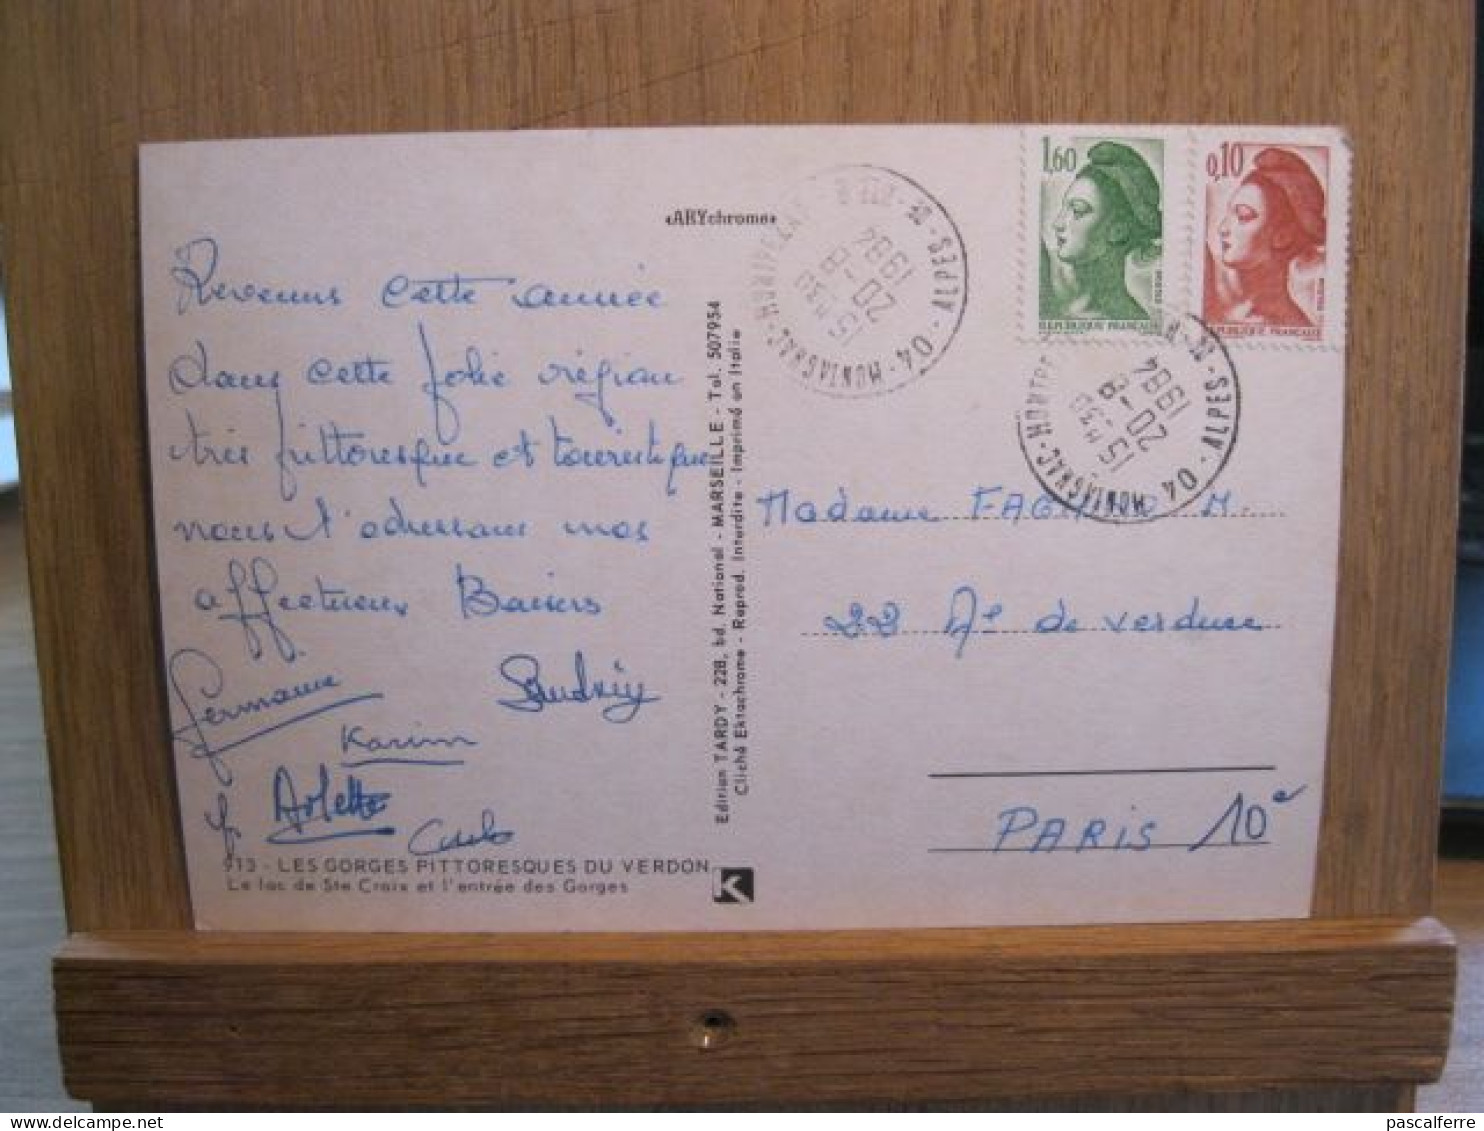 «ARYchrome»
1,60
REPUBLIQUE FRANÇAISE
0,10
REPUBLIQUE FRANÇAISE
15 H30
20 -8
1984
04 - MONTAGNAC-MONTPE
ALPES - DE - HTE
15 H30
20 -8
1984
04 - MONTAGNAC-MONTPE
ALPES - DE - H
Revenus cette année
dans cette jolie région
très pittoresque et touristique
nous t'adressons nos
affectueux Baisers
Germaine
Karim
Arlette
Edition TARDY - 228, bd. National - MARSEILLE - Tél. 507954
Cliché Ektachrome - Reprod. Interdite - Imprimé en Italie
Madame M.
22 de verdure
PARIS 10e
913 - LES GORGES PITTORESQUES DU VERDON
Le lac de Ste Croix et l'entrée des Gorges
K
pascalferre